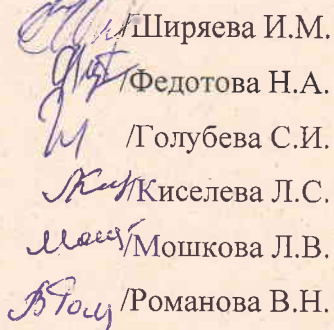 /Ширяева И.М.
/Федотова Н.А.
/Голубева С.И.
/Киселева Л.С.
/Мошкова Л.В.
/Романова В.Н.